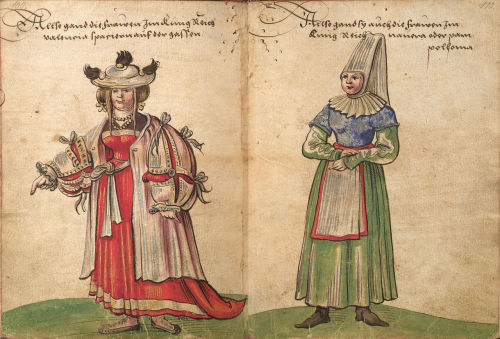 Allso gand die frawen Im Kung Reich
valencia spacieren auf der gassen
Allso gand sy auch die frawen Im
Kung Reich nauera oder pam
pollonia